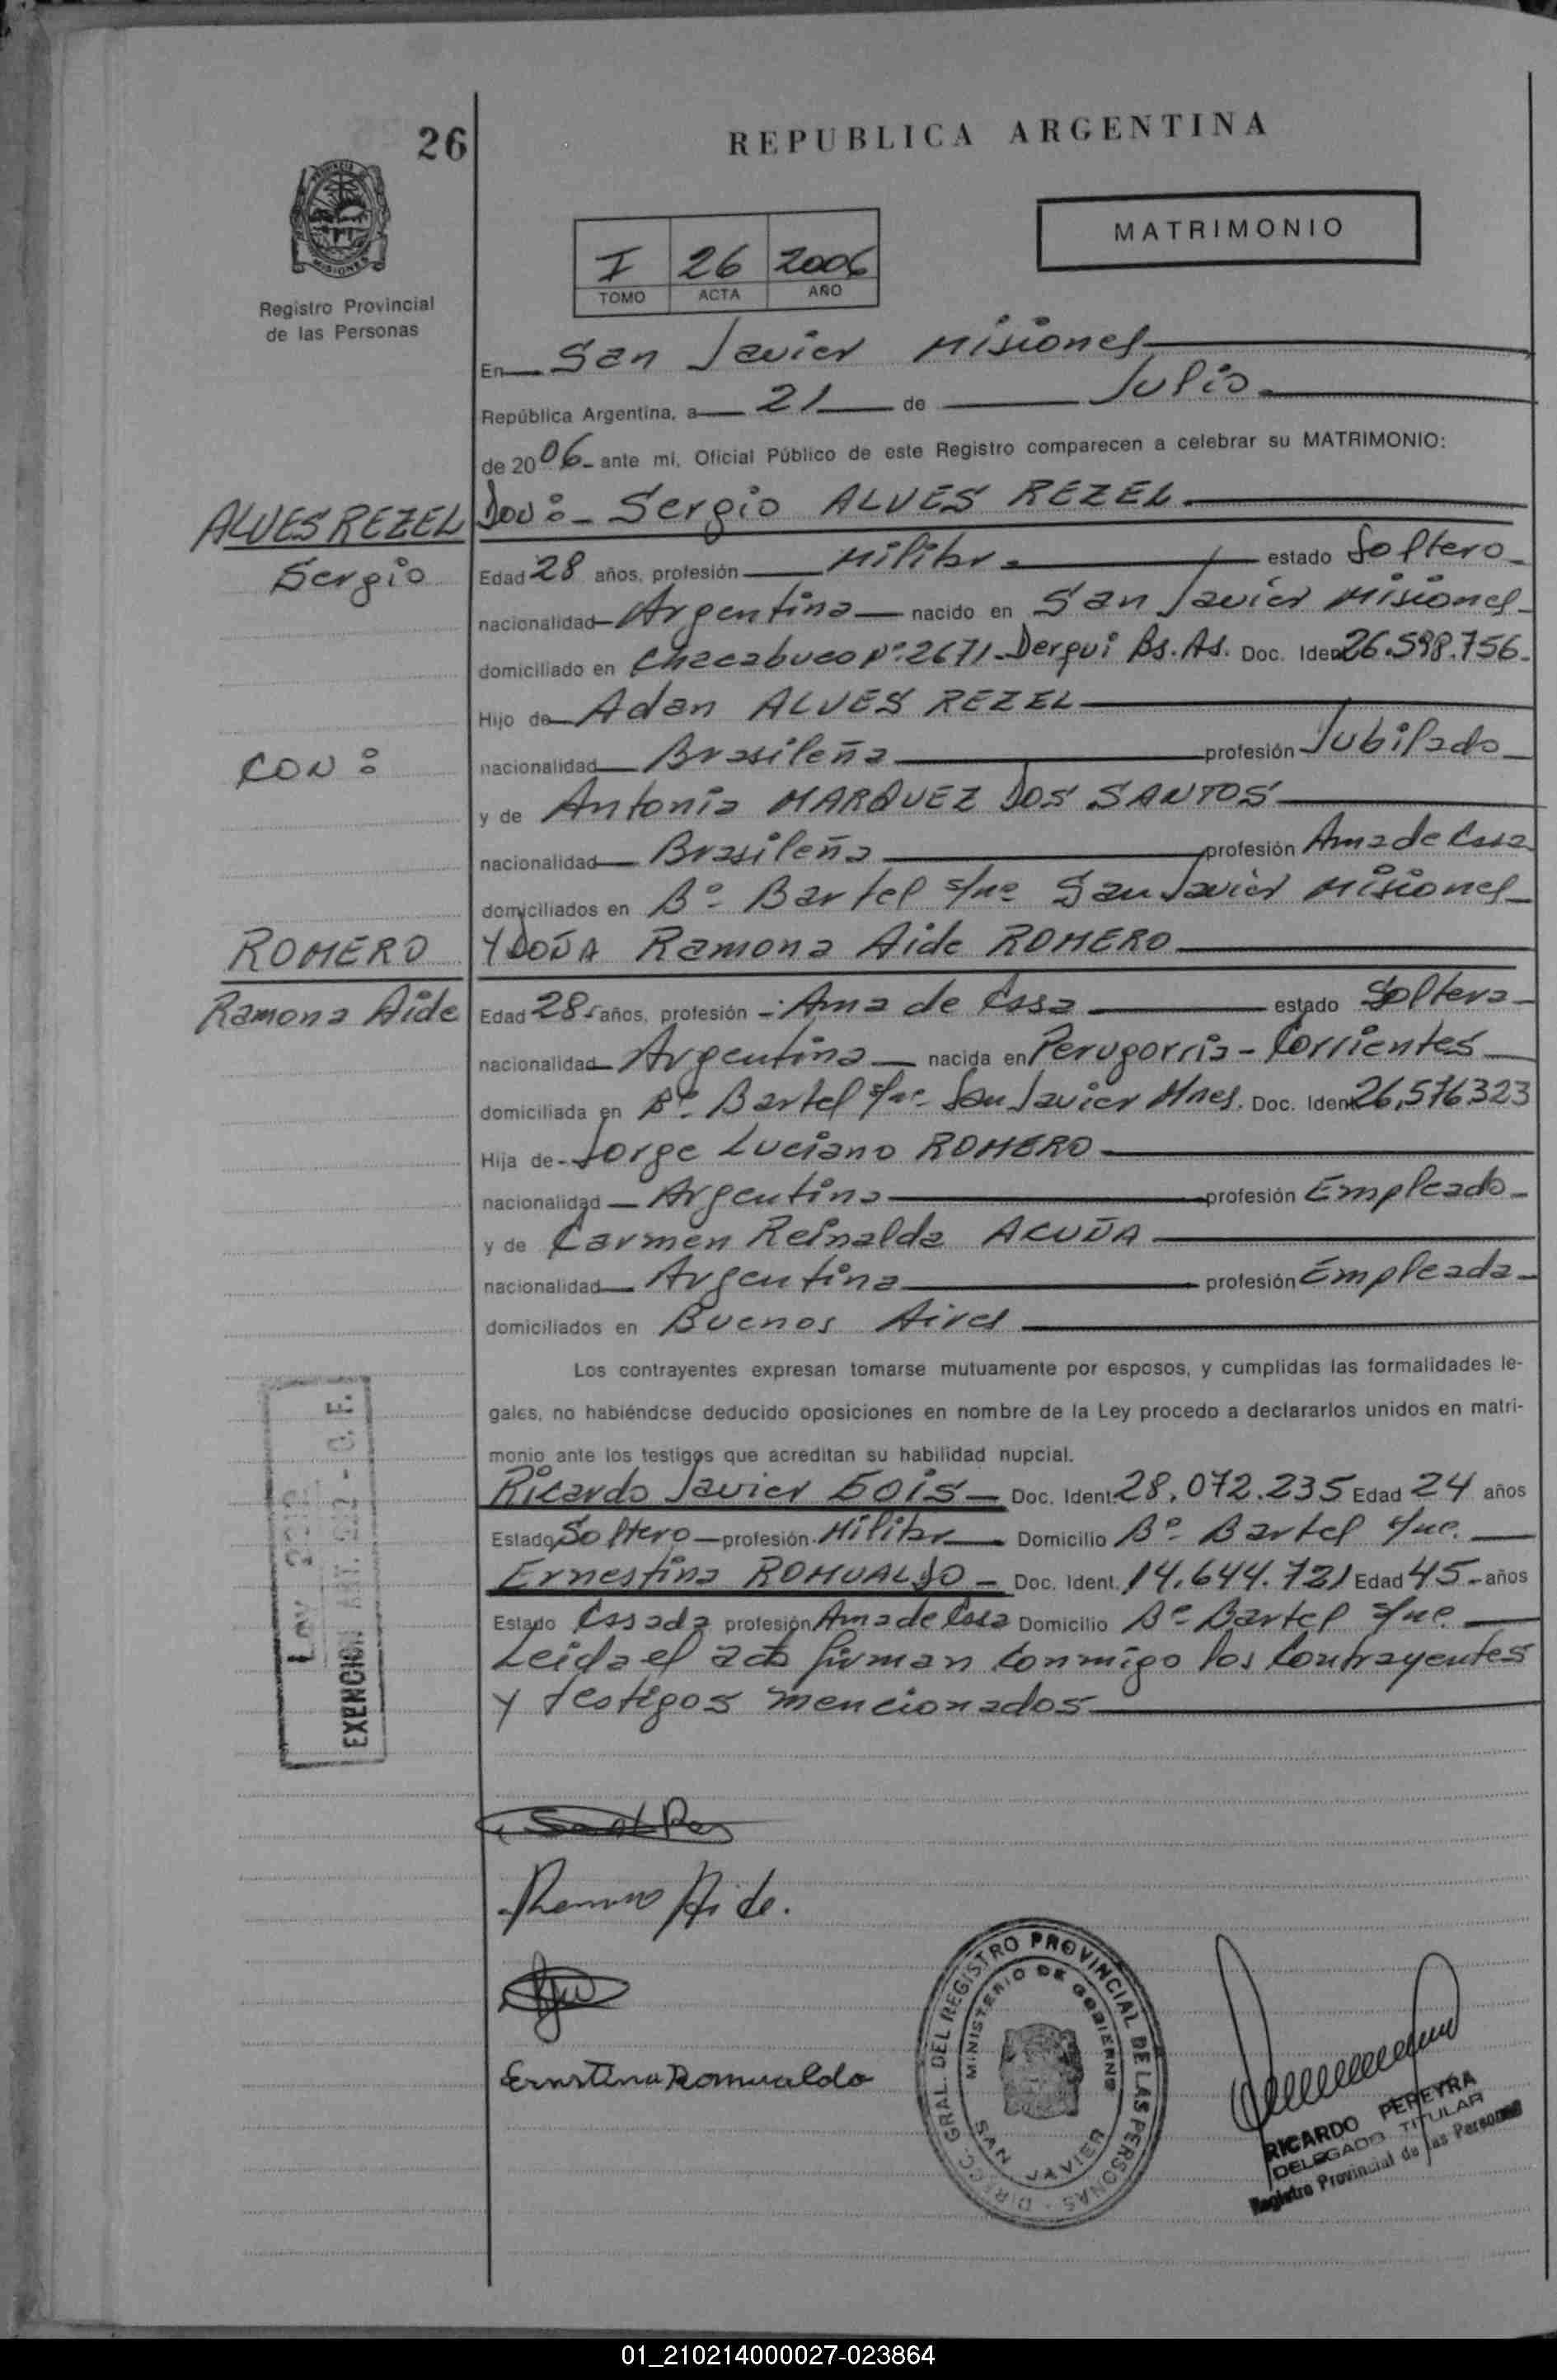 26
REPUBLICA ARGENTINA
MATRIMONIO
I 26 2006
TOMO ACTA AÑO
Registro Provincial
de las Personas
En San Javier Misiones
República Argentina, a 21 de Julio
de 2006 ante mí, Oficial Público de este Registro comparecen a celebrar su MATRIMONIO:
ALVES REZEL
Sergio
Don:- Sergio ALVES REZEL
Edad 28 años, profesión Militar estado Soltero
nacionalidad Argentina nacido en San Javier Misiones
domiciliado en Chacabuco Nº 2671-Derqui Bs. As. Doc. Ident 26.598.756.
Hijo de Adan ALVES REZEL
CON:
nacionalidad Brasileña profesión Jubilado
y de Antonia MARQUEZ DOS SANTOS
nacionalidad Brasileña profesión Ama de Casa
domiciliados en Bº Bartel s/nº San Javier Misiones
ROMERO
Ramona Aide
Y DOÑA Ramona Aide ROMERO
Edad 28 años, profesión Ama de Casa estado Soltera
nacionalidad Argentina nacida en Perugorria - Corrientes
domiciliada en Bº Bartel s/nº San Javier Mnes. Doc. Ident 26.576.323
Hija de Jorge Luciano ROMERO
nacionalidad Argentina profesión Empleado
y de Carmen Reinalda ACUÑA
nacionalidad Argentina profesión Empleada
domiciliados en Buenos Aires
Los contrayentes expresan tomarse mutuamente por esposos, y cumplidas las formalidades le-
gales, no habiéndose deducido oposiciones en nombre de la Ley procedo a declararlos unidos en matri-
monio ante los testigos que acreditan su habilidad nupcial.
Ricardo Javier GOIS Doc. Ident. 28.072.235 Edad 24 años
Estado Soltero profesión Militar Domicilio Bº Bartel s/nº.
Ernestina ROMUALDO Doc. Ident. 14.644.721 Edad 45 años
Estado Casada profesión Ama de Casa Domicilio Bº Bartel s/nº
Leida el acta firman conmigo los Contrayentes
y testigos mencionados
EXENCION ART.
Aide.
Ernestina Romualdo
DIRECC. GRAL. DEL REGISTRO PROVINCIAL DE LAS PERSONAS
MINISTERIO DE GOBIERNO
SAN JAVIER
RICARDO PEREYRA
DELEGADO TITULAR
Registro Provincial de las Personas
01_210214000027-023864